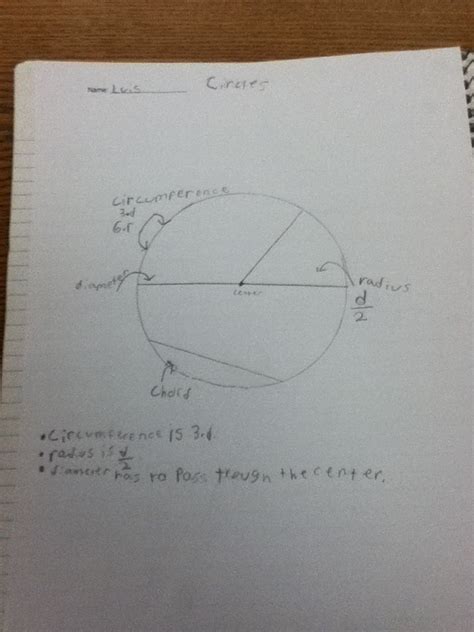 Name: Luis
Circles
circumference
3.d
6.r
diameter
center
radius
d
2
Chord
• Circumference is 3.d.
• radius is d/2.
• diameter has to pass though the center.